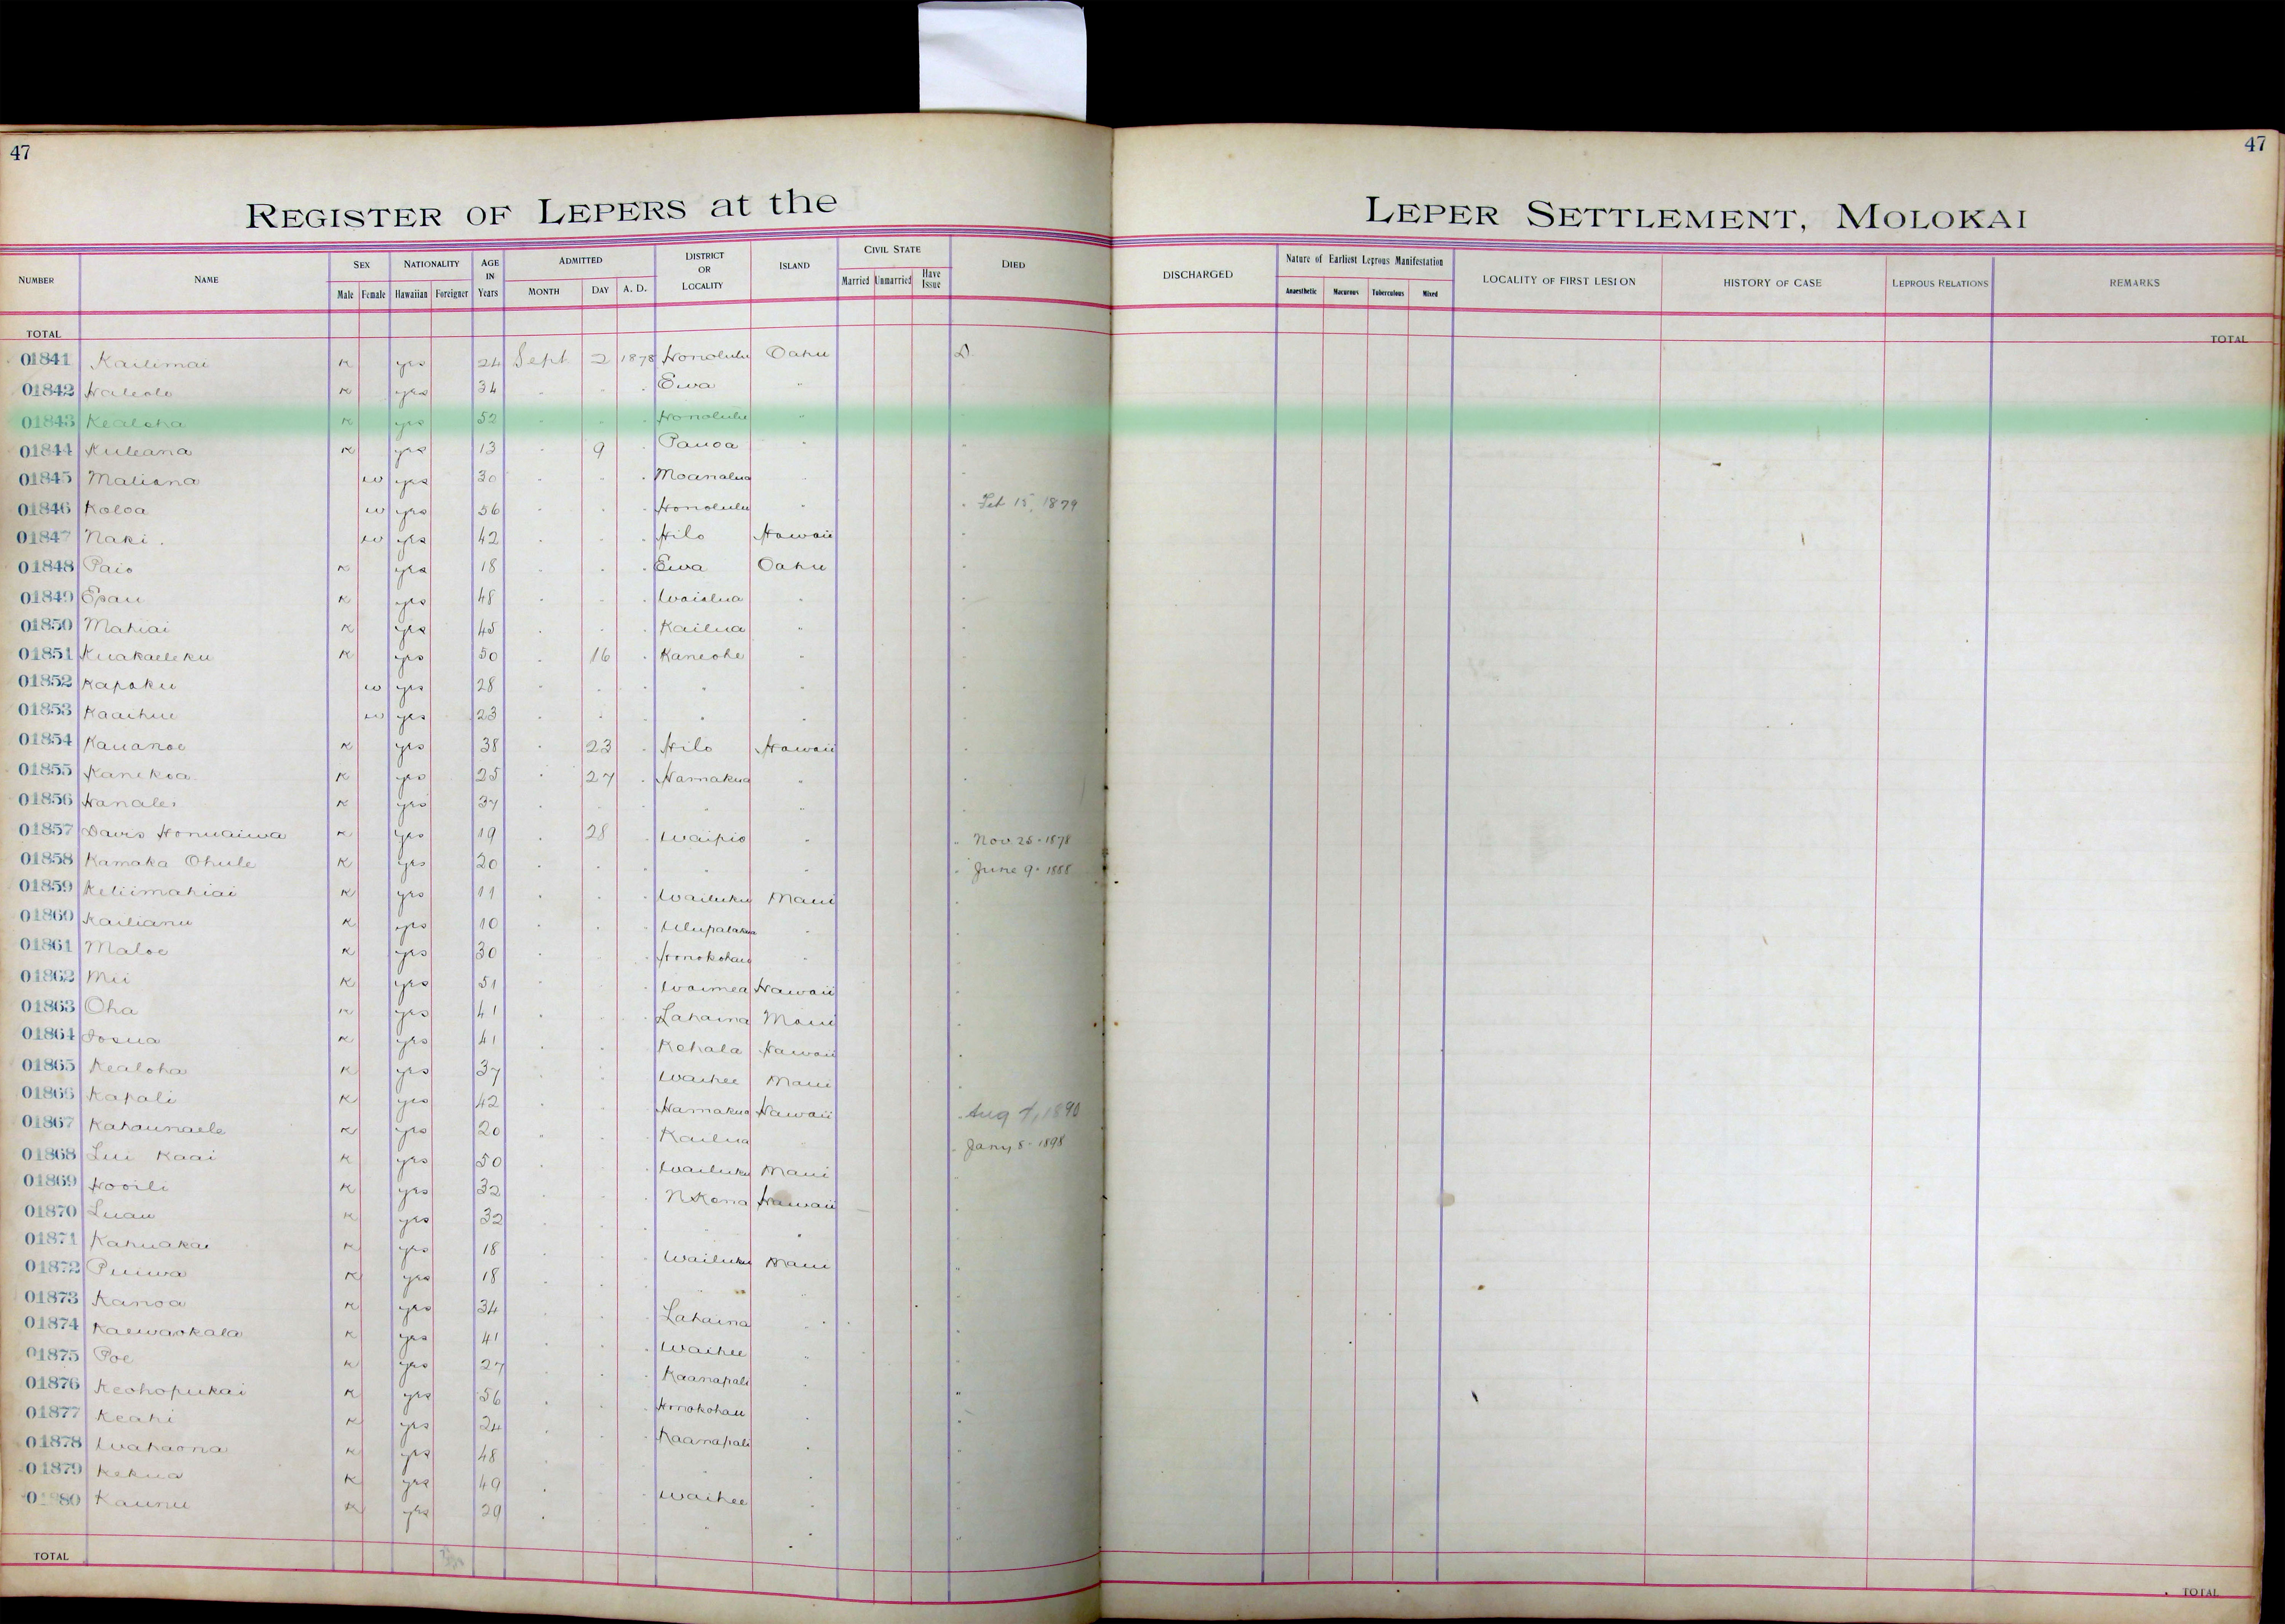 47
47
REGISTER OF LEPERS at the LEPER SETTLEMENT, MOLOKAI
NUMBER NAME SEX NATIONALITY AGE IN Years ADMITTED DISTRICT OR LOCALITY ISLAND CIVIL STATE DIED DISCHARGED Nature of Earliest Leprous Manifestation LOCALITY OF FIRST LESION HISTORY OF CASE LEPROUS RELATIONS REMARKS
Male Female Hawaiian Foreigner MONTH DAY A. D. Married Unmarried Have Issue Anaesthetic Macurous Tuberculous Mixed
TOTAL TOTAL
01841 Kailimai K yes 24 Sept 2 1878 Honolulu Oahu D
01842 Haleole K yes 34 . . . Ewa "
01843 Kealoha K yes 52 . . . Honolulu "
01844 Kuleana K yes 13 . 9 . Pauoa "
01845 Maliana w yes 30 . . . Moanalua "
01846 Koloa w yes 56 . . . Honolulu " . Feb 15, 1879
01847 Naki . w yes 42 . . . Hilo Hawaii .
01848 Paio K yes 18 . . . Ewa Oahu .
01849 Epau K yes 48 . . . Waialua " .
01850 Mahiai K yes 45 . . . Kailua " .
01851 Kuakaeleku K yes 50 . 16 . Kaneohe " .
01852 Kapoku w yes 28 . . . " .
01853 Kaaihue w yes 23 . . . " .
01854 Kauanoe K yes 38 . 23 . Hilo Hawaii .
01855 Kanekoa K yes 25 . 27 . Hamakua " .
01856 Hanalei K yes 37 . . . " " .
01857 Davis Honuaiwa K yes 19 . 28 . Waipio " " Nov 25 - 1878
01858 Kamaka Ohule K yes 20 . . . " " . June 9 - 1888
01859 Keliimahiai K yes 11 . . . Wailuku Maui .
01860 Kailianu K yes 10 . . . Ulupalakua " .
01861 Maloe K yes 30 . . . Honokohau " .
01862 Mii K yes 51 . . . Waimea Hawaii .
01863 Oha K yes 41 . . . Lahaina Maui .
01864 Iosua K yes 41 . . . Kohala Hawaii .
01865 Kealoha K yes 37 . . . Waihee Maui .
01866 Kapali K yes 42 . . . Hamakua Hawaii . Aug 7, 1890
01867 Kahaunaele K yes 20 " . . Kailua . Jany 8 - 1898
01868 Lui Kaai K yes 50 . . . Wailuku Maui .
01869 Hooili K yes 32 . . . N Kona Hawaii .
01870 Luau K yes 32 . . . " " .
01871 Kahuakai K yes 18 . . . Wailuku Maui "
01872 Puiwa K yes 18 . . . " " .
01873 Kanoa K yes 34 . . . Lahaina " .
01874 Kaewaokala K yes 41 . . . Waihee " .
01875 Poe K yes 27 . . . Kaanapali . .
01876 Keohopukai K yes 56 . . . Honokohau . "
01877 Keahi K yes 24 . . . Kaanapali . .
01878 Wahaona K yes 48 . . . " . .
01879 Kekua K yes 49 . . . Waihee . .
01880 Kaunu K yes 29 . . . " . "
TOTAL TOTAL